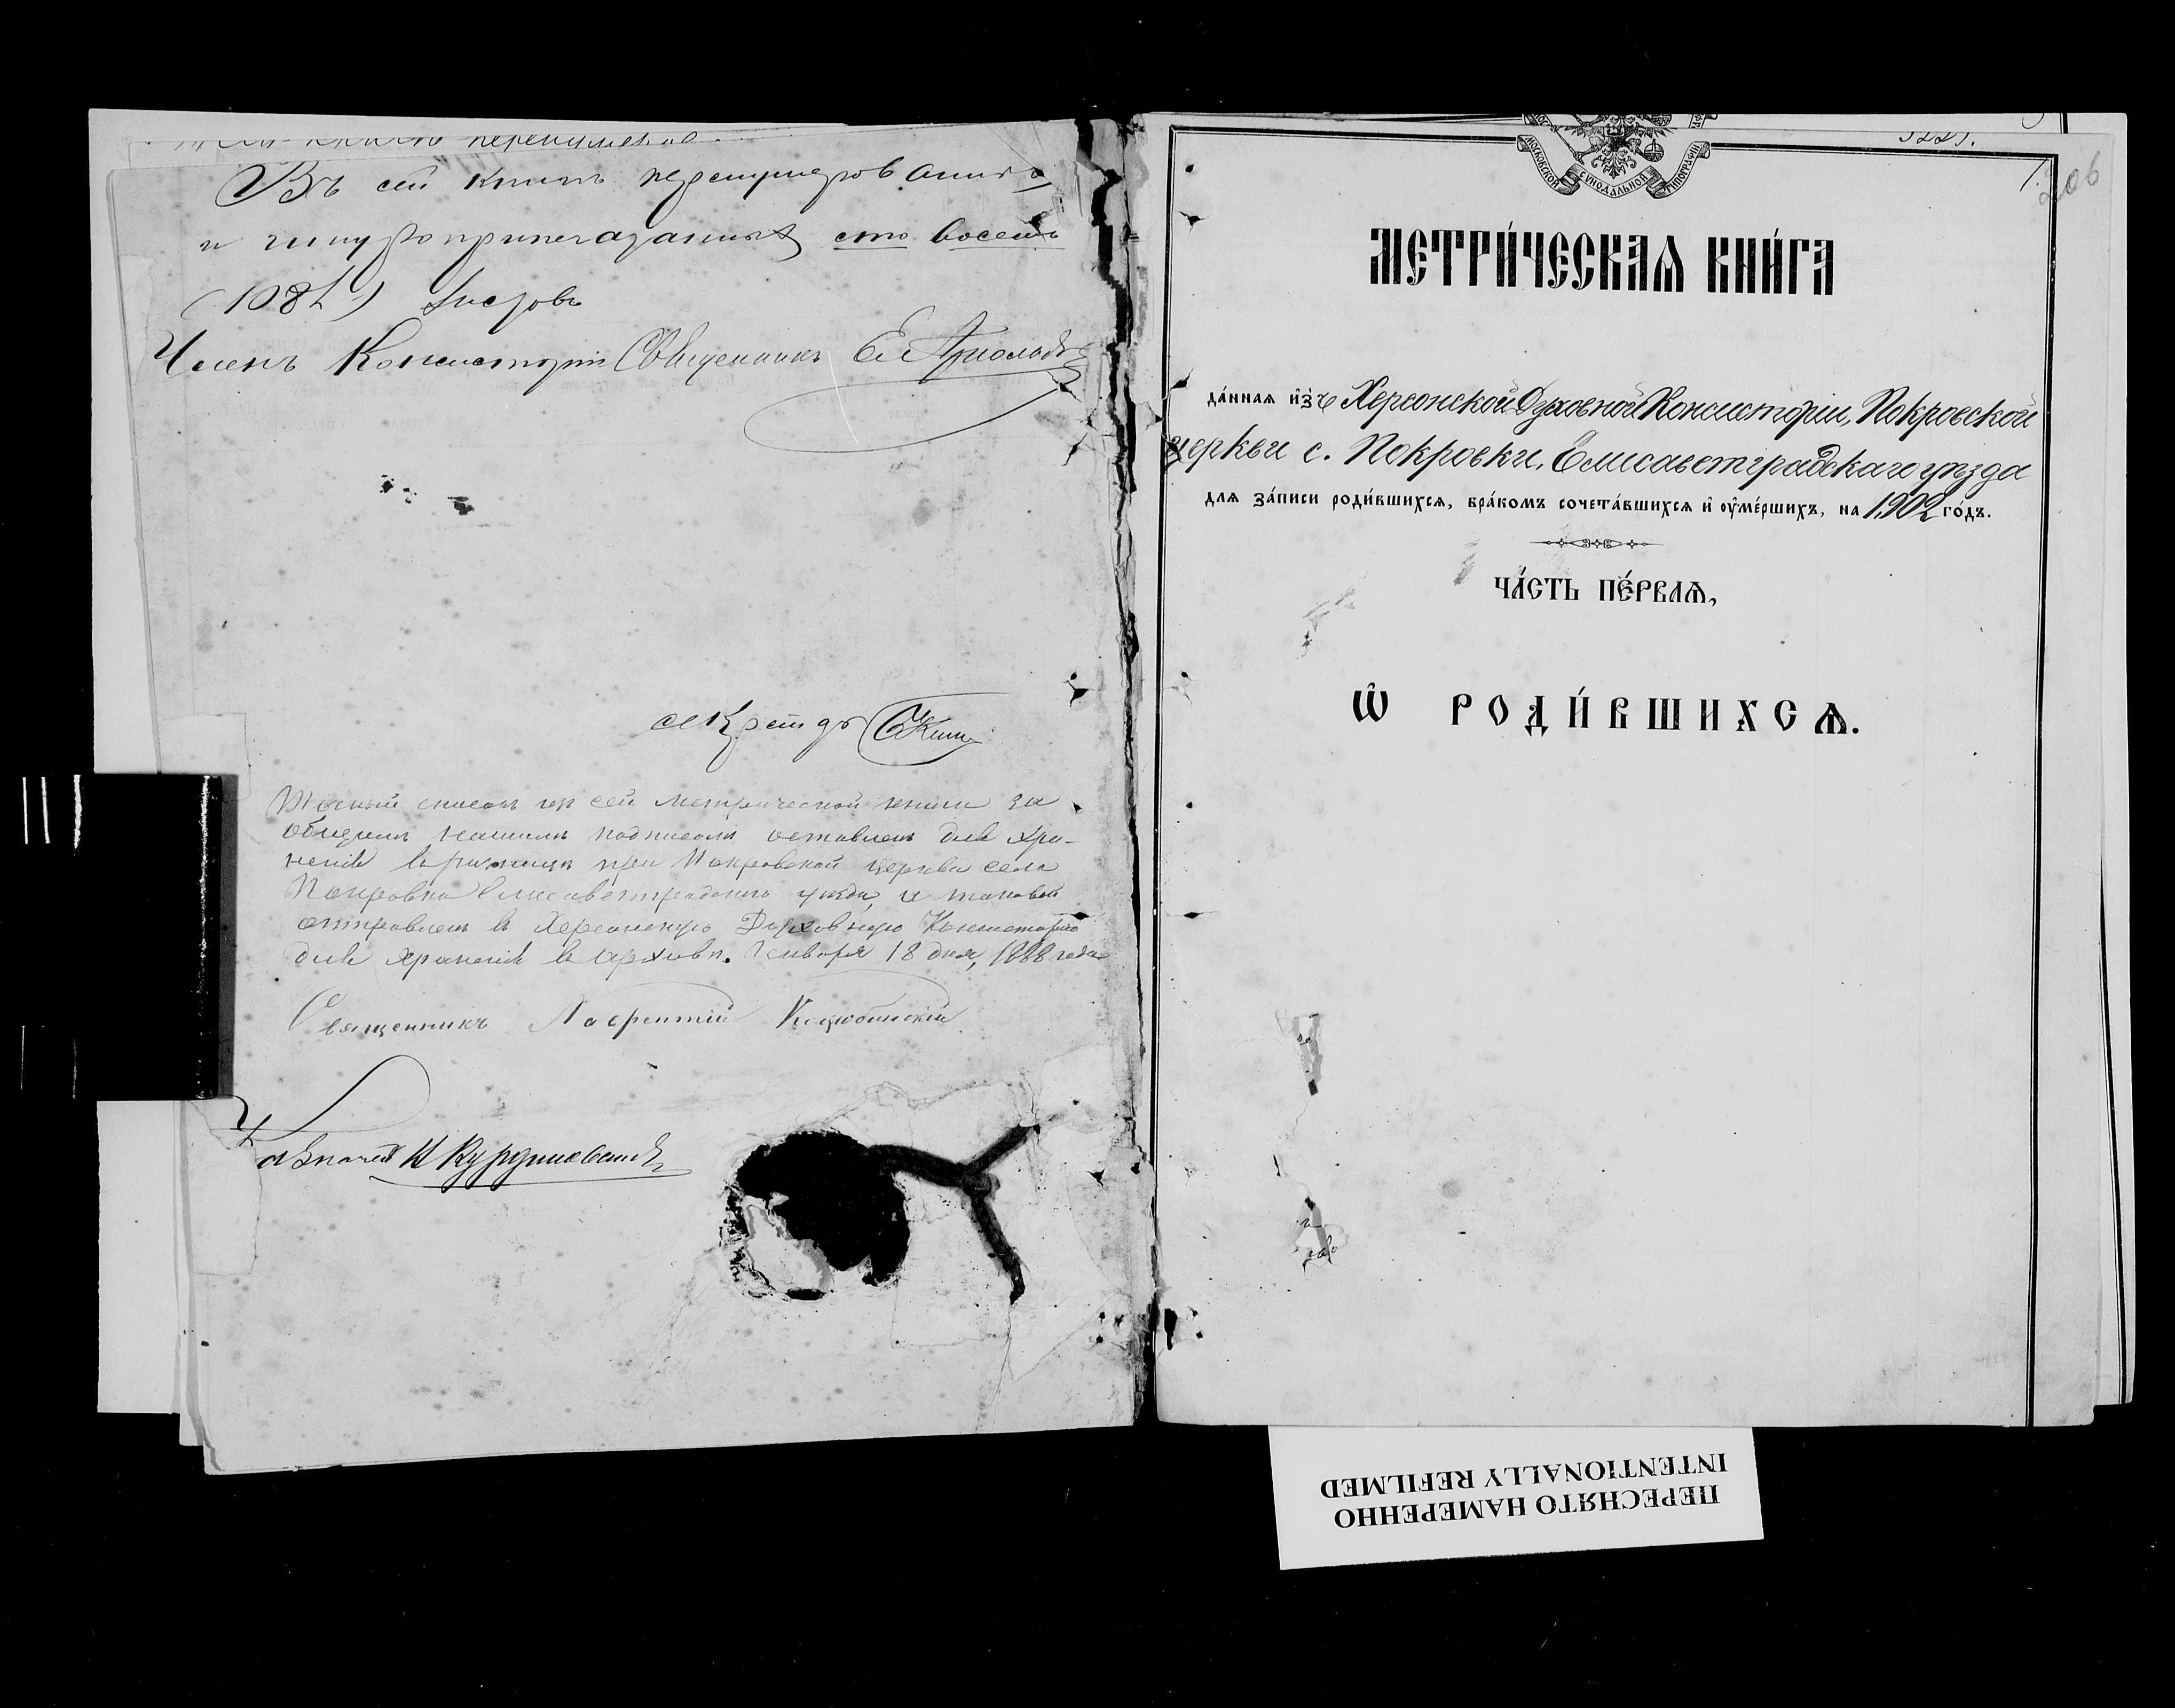 Въ сей книгѣ перенумерованныхъ
и шнуроприпечатанныхъ сто восемь
(108 л.) листовъ
Членъ Консисторіи Священникъ Е. Арнольдъ
Секретарь
Точный списокъ изъ сей метрической книги за
общимъ нашимъ подписомъ оставленъ для хра-
ненія въ ризницѣ при Покровской церкви села
Покровки Елисаветградскаго уѣзда, и таковой
отправленъ въ Херсонскую Духовную Консисторію
для храненія въ архивѣ. Генваря 18 дня, 1888 года
Священникъ Лаврентій Коцюбинскій
МОСКОВСКОЙ СѴНОДАЛЬНОЙ ТИПОГРАФІИ
1.
206
МЕТРИ́ЧЕСКАѦ КНИ́ГА
да́ннаѧ и҆зъ Херсонской Духовной Консисторіи, Покровской
церкви с. Покровки, Елисаветградскаго уѣзда
длѧ за́писи роди́вшихсѧ, бра́комъ сочета́вшихсѧ и҆ оу҆ме́ршихъ, на 1902 го́дъ.
ЧА́СТЬ ПЕ́РВАѦ,
Ѡ҆ РОДИ́ВШИХСѦ.
ПЕРЕСНЯТО НАМЕРЕННО
INTENTIONALLY REFILMED